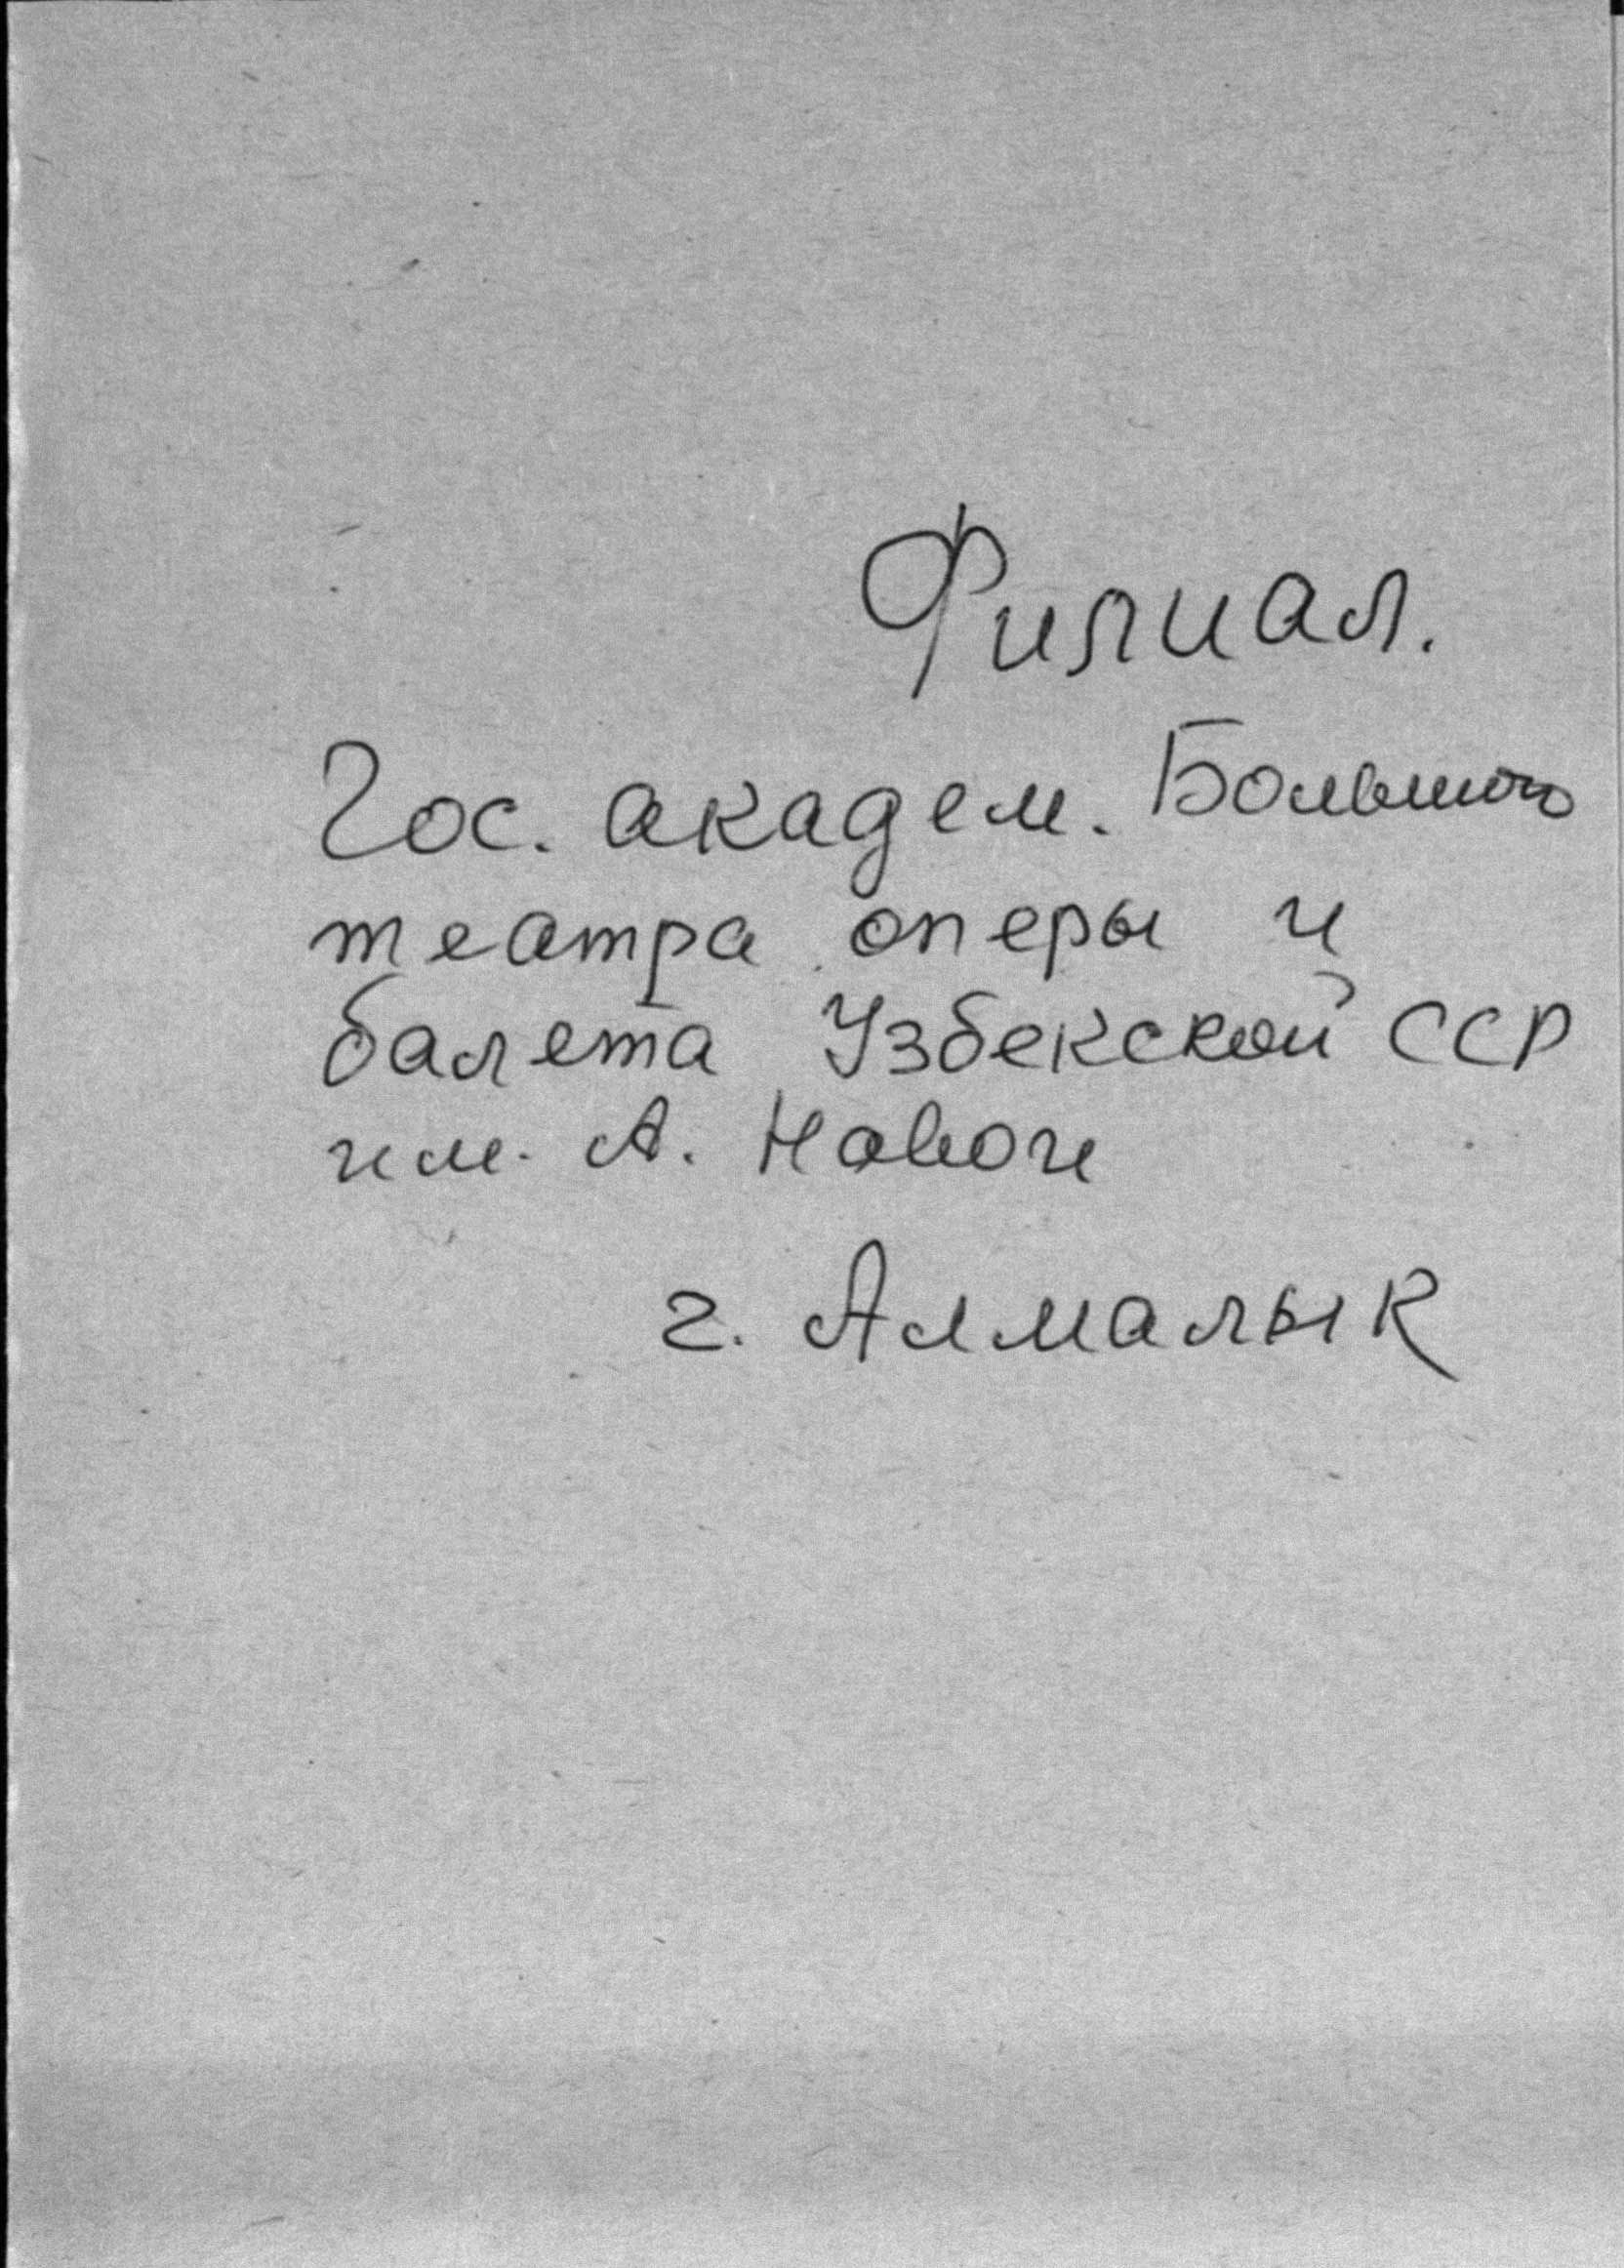 Филиал.
Гос. академ. Большого
театра оперы и
балета Узбекской ССР
им. А. Навои
г. Алмалык